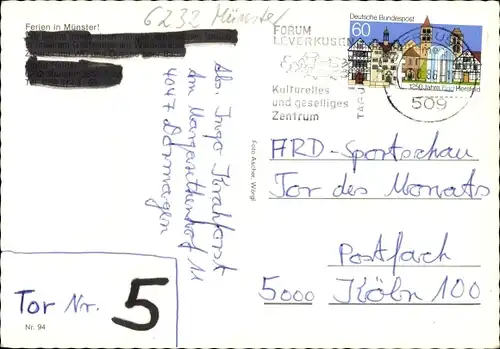 6232 Münster
Ferien in Münster!
Abs. Ingo Krahforst
Am Margarethenhof 11
4047 Dormagen
Tor Nr. 5
Nr. 94
Foto Ascher, Wörgl
FORUM
LEVERKUSEN
Kulturelles
und geselliges
Zentrum
Deutsche Bundespost
60
1250 Jahre Bad Hersfeld
509
ARD-Sportschau
Tor des Monats
Postfach
5000 Köln 100